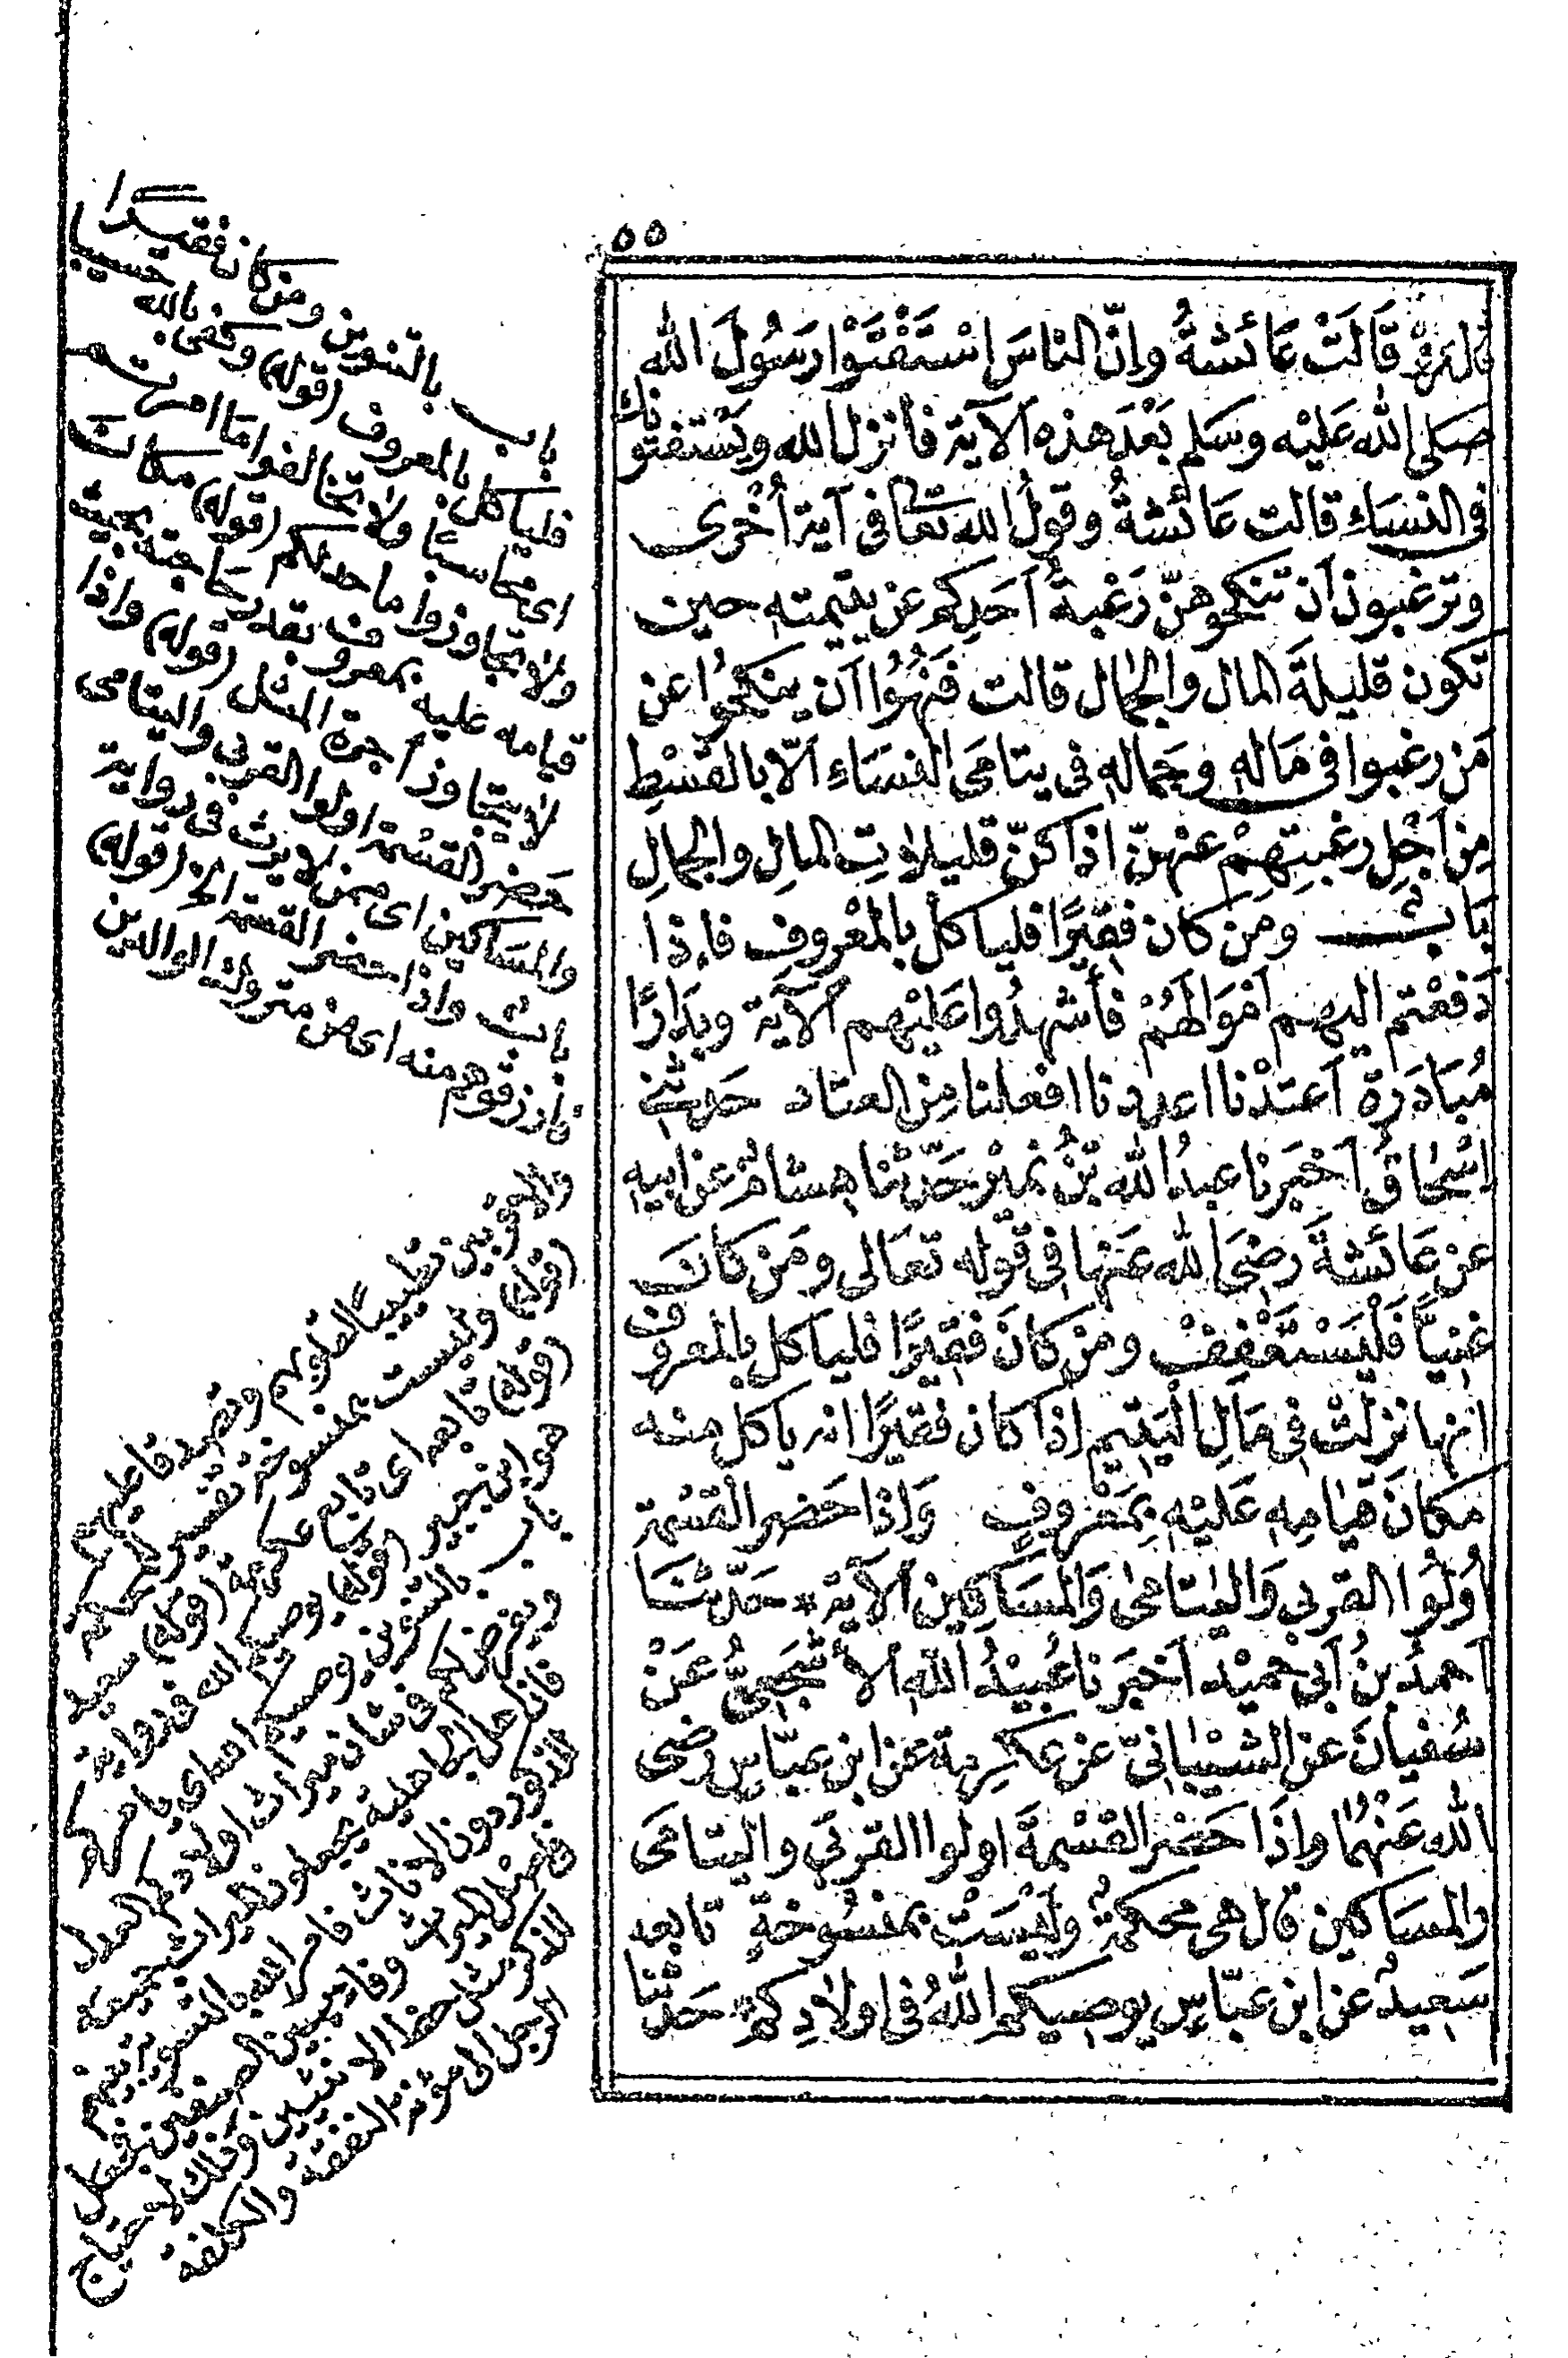 ٥٥
قال عروة قَالَتْ عَائشةُ وإنّ الناسَ اسْتَفْتَوْا رَسُولَ الله
صلى الله عَلَيْه وسَلم بَعْدَ هذه الآية فأنزل الله ويَسْتَفتونك
فى النسَاءِ قالت عَائشةُ وقولُ الله تعَا فى آية أُخْرى
وترغبون أن تنكحوهنّ رَغبةُ أحَدِكم عن يتيمته حين
تكون قليلةَ المال والجمال قالت فَنُهُوْا أن ينكحُوا عن
مَن رغبوا فى مَاله وجَماله فى يتامَى النسَاء الّا بالقسْطِ
مِن أجْلِ رغبتِهِمْ عنهنّ اذا كنّ قليلاتِ المالِ والجمالِ
بَابُ ومَن كان فقيرًا فليأكل بالمعْروف فإذا
دَفعْتم اليهم امْوَالهُمْ فأشهدُوا عَليْهم الآية وبدَارًا
مُبَادَرة أعتدْنا اعددنا افعلنا مِن العتاد حَدثنى
اسْحاقُ أخبَرنا عبدُ الله بنُ نميْر حَدّثنا هشامٌ عن ابيه
عن عَائشةَ رضىَ الله عَنها فى قوْله تعَالى ومَن كانَ
غنيّاً فَلْيَسْتَعْفِفْ ومَن كانَ فقيرًا فليأكل بالمعروف
انها نزلتْ فى مَالِ الْيتيم اذا كان فقيرًا انه يأكل منه
مكانَ قيامِهِ عَليْهِ بِمَعْروفٍ وَإذا حَضر القسْمة
أولُوا القربى وَاليتامىٰ وَالمسَاكين الآية * حَدّثنَا
أحمدُ بنُ أبى حميْد أخبَرنا عُبيْدُ الله الأشجَعىُّ عَنْ
سُفيانَ عن الشيْبانىّ عن عكرِمة عن ابن عبّاسٍ رضى
الله عَنْهُمَا واذَا حَضر القسْمةَ اولوا القربَى واليتامَى
والمسَاكين قال هى محكمةٌ وليْسَتْ بمنسُوخةٍ تابعه
سَعيدٌ عن ابن عبّاسٍ يوصيكم اللهُ فى اولادِكم * حَدثنا
باب بالتنوين ومن كان فقيرا
فلياكل بالمعروف (قوله) وكفى بالله حسيبا
اى محاسبا ولا تخالفوا ما امرتكم
ولا تجاوزوا ما حد لكم (قوله) مكانَ
قيامه عليه بمعروف بقدر حاجته بحيث
لا يتجاوز اجرة المثل (قوله) واذا
حضر القسمة اولوا القربى واليتامى
والمساكين اى ممن لا يرث فى رواية
باب واذا حضر القسمة الخ (قوله)
فارزقوهم منه اى من متروك الوالدين
والاقربين تطييبا لقلوبهم وتصدقا عليهم
(قوله) وليست بمنسوخة تفسير لمحكم
(قوله) تابعه اى تابع عكرمة (قوله) سعيد
هو ابن جبير (قوله) يوصيكم الله فى رواية
باب بالتنوين يوصيكم الله اى يامركم
ويفرض لكم فى شان ميراث اولادكم العدل
فان اهل الجاهلية يجعلون الميراث جميعه
للذكور دون الاناث فامر الله بالتسوية بينهم
فى اصل الميراث وفاوت بين الصنفين فجعل
للذكر مثل حظ الانثيين وذلك لاحتياج
الرجل الى مؤنة النفقة والكلفة